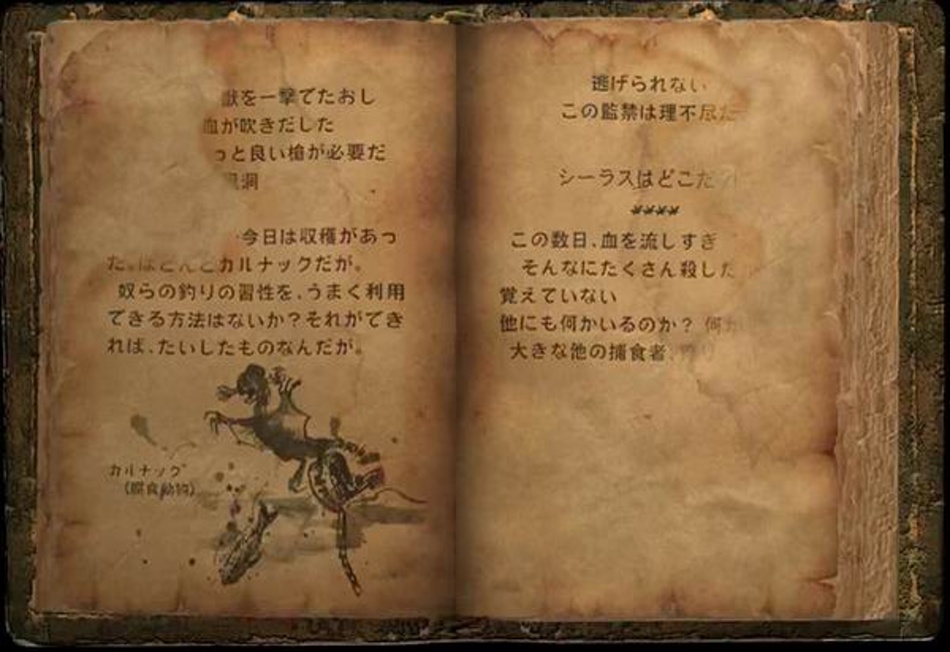 獣を一撃でたおし
血が吹きだした
っと良い槍が必要だ
洞
今日は収穫があっ
た。ほとんどカルナックだが。
奴らの釣りの習性を、うまく利用
できる方法はないか？それができ
れば、たいしたものなんだが。
カルナック
（腐食動物）
逃げられない
この監禁は理不尽だ
シーラスはどこだ
****
この数日、血を流しすぎ
そんなにたくさん殺した
覚えていない
他にも何かいるのか？ 何か
大きな他の捕食者、